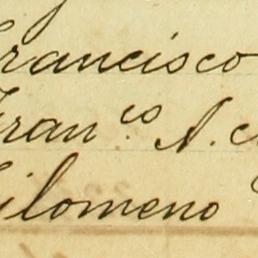 Francisco
Fran.co A. c
Filomeno